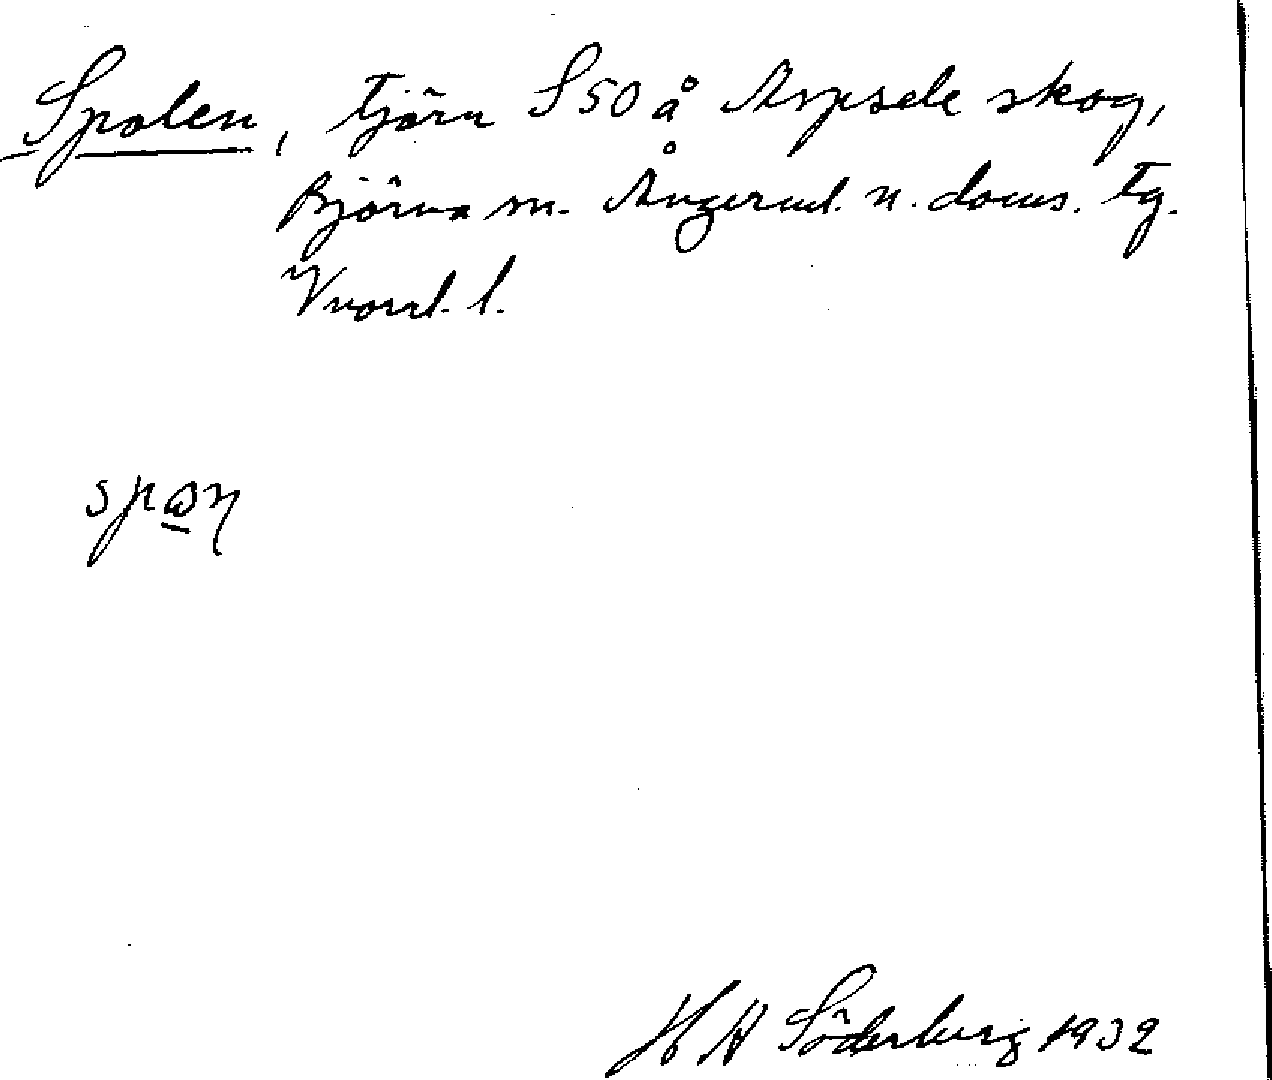 Spolen, tjärn S50 å Aspsele skog,
Björna sn. Ångerml. n. doms. tg.
Vnorrl. l.
spωn
H A Söderberg 1932